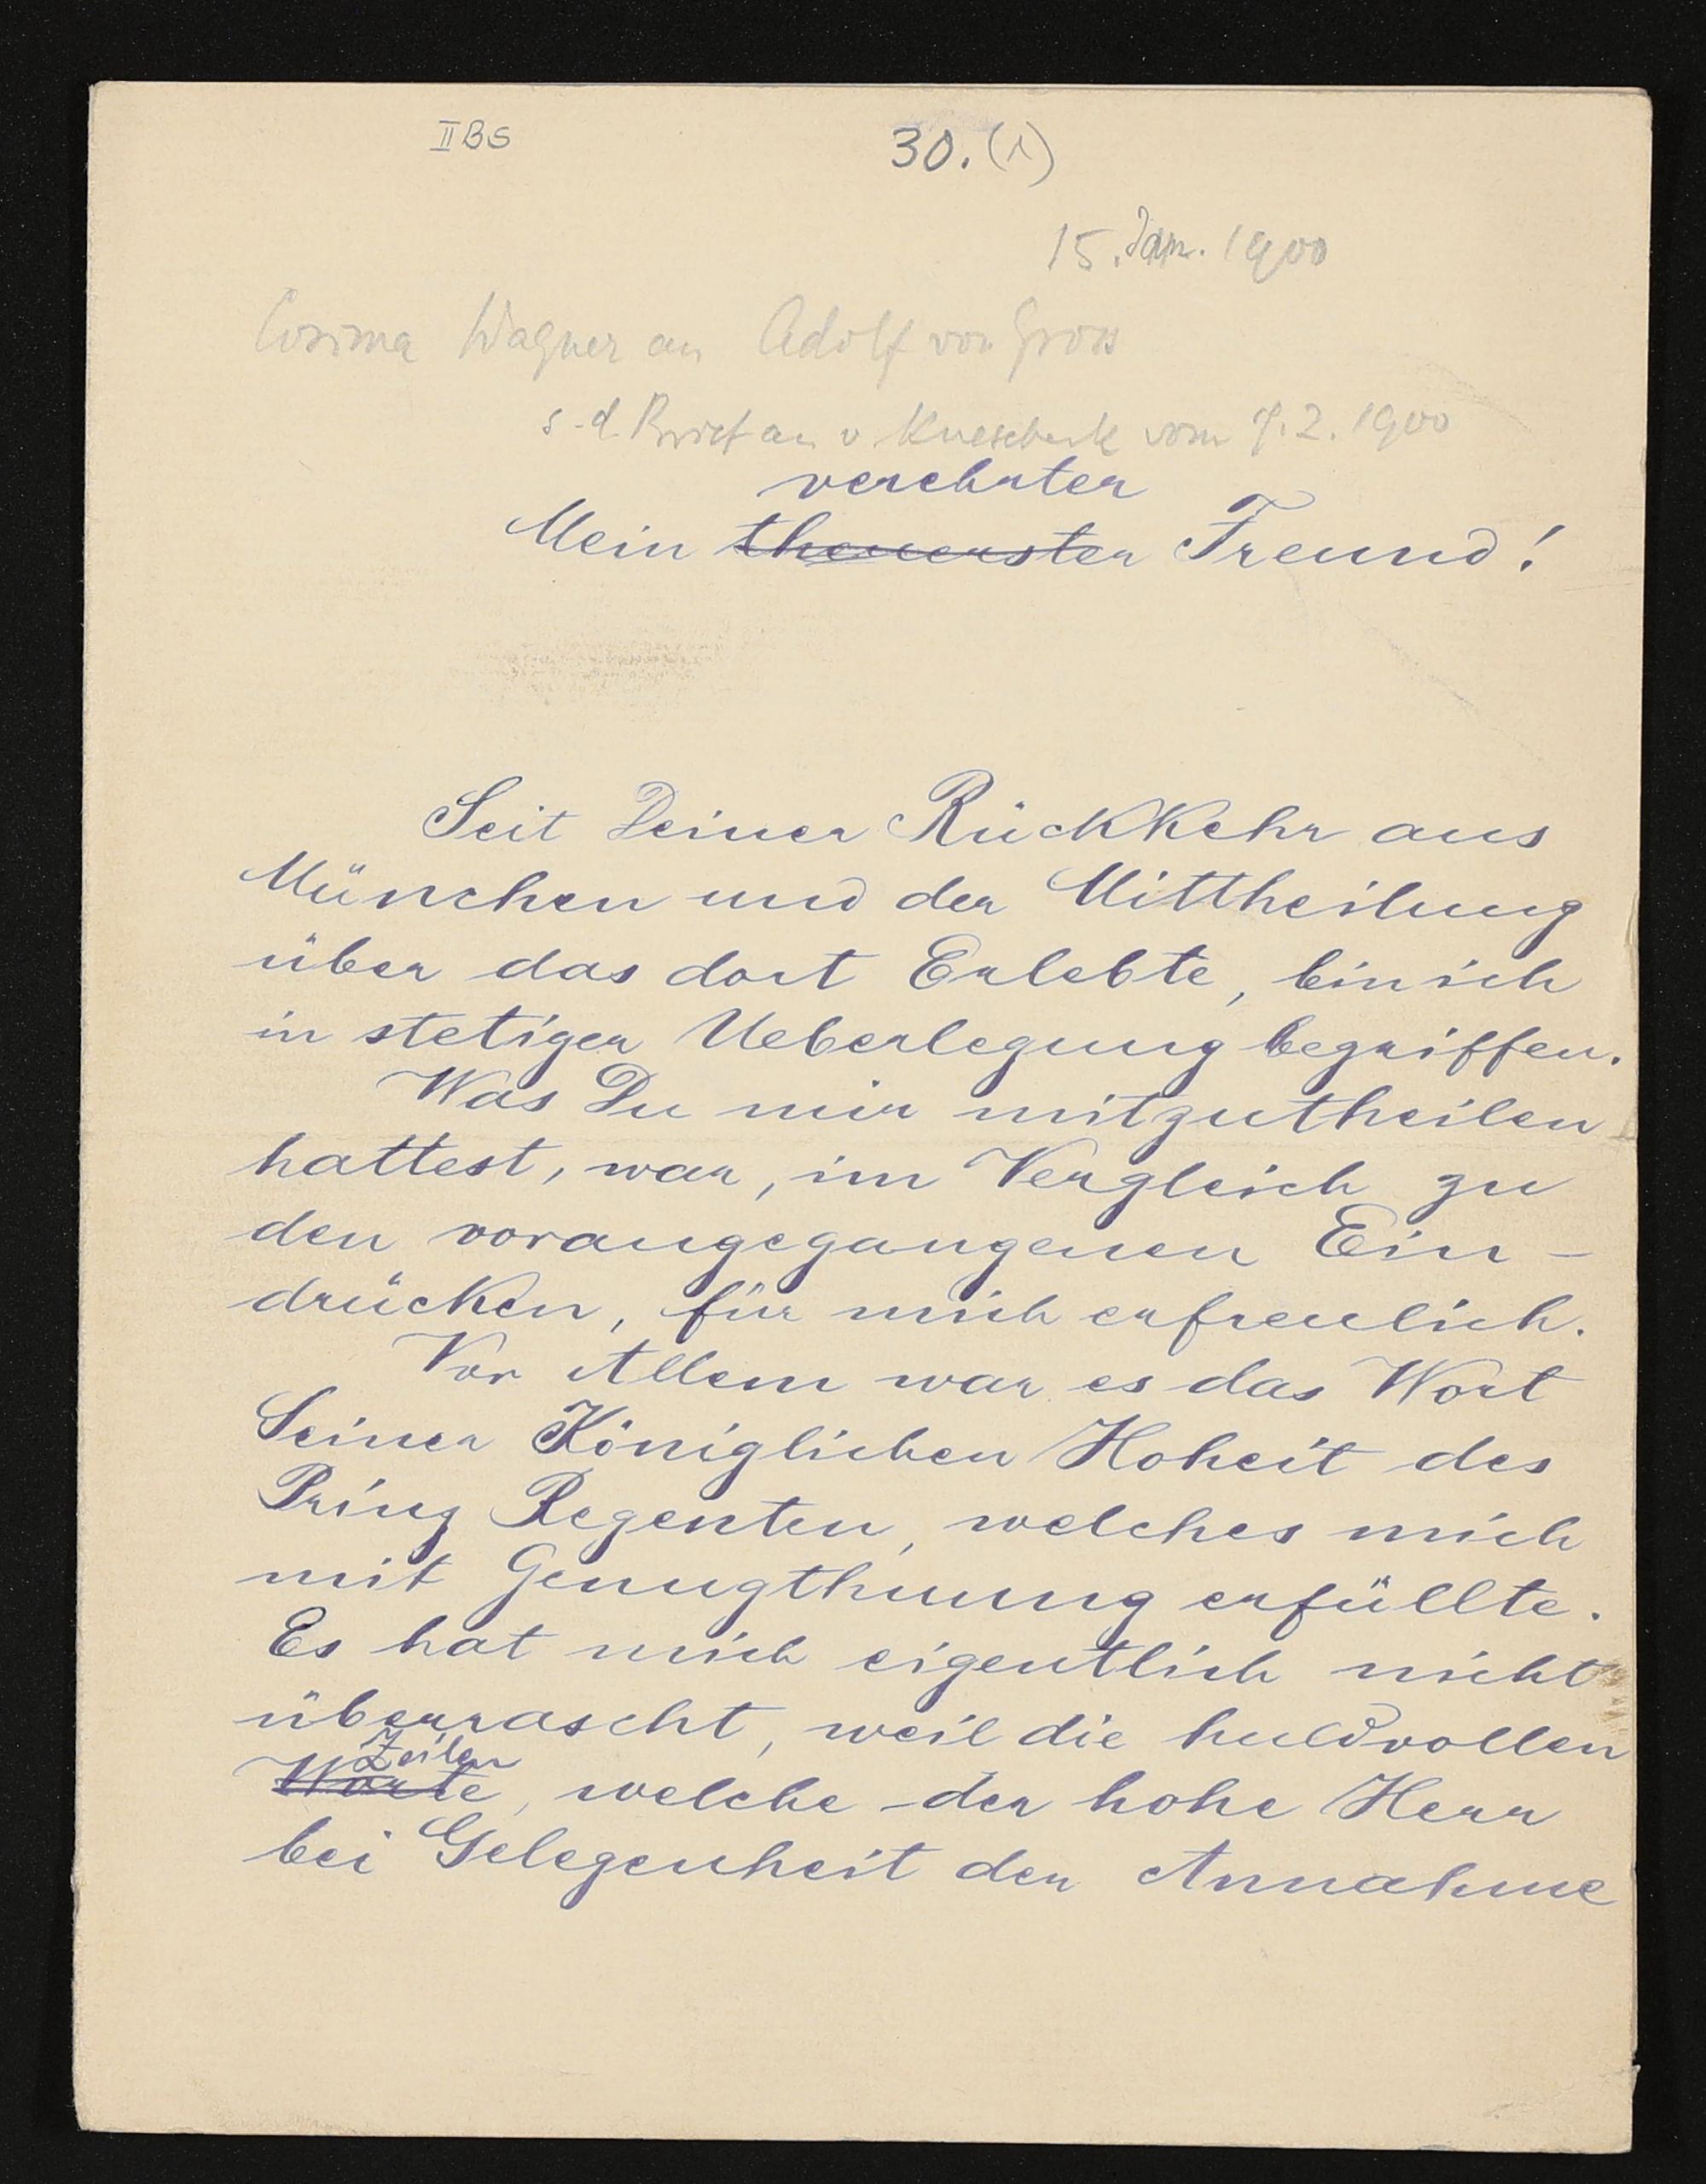 II B S
30. (1)
15. Jan. 1900
Cosima Wagner an Adolf von Gross
s. d. Brief an v Knesebeck vom 9. 2. 1900
verehrter
Mein theuerster Freund!
Seit Deiner Rückkehr aus
München und der Mittheilung
über das dort Erlebte, bin ich
in stetiger Ueberlegung begriffen.
Was Du mir mitzutheilen
hattest, war, im Vergleich zu
den vorangegangenen Ein-
drücken, für mich erfreulich.
Vor Allem war es das Wort
Seiner Königlichen Hoheit des
Prinz Regenten, welches mich
mit Genugthuung erfüllte.
Es hat mich eigentlich nicht
überrascht, weil die huldvollen
Zeilen
Worte, welche der hohe Herr
bei Gelegenheit der Annahme